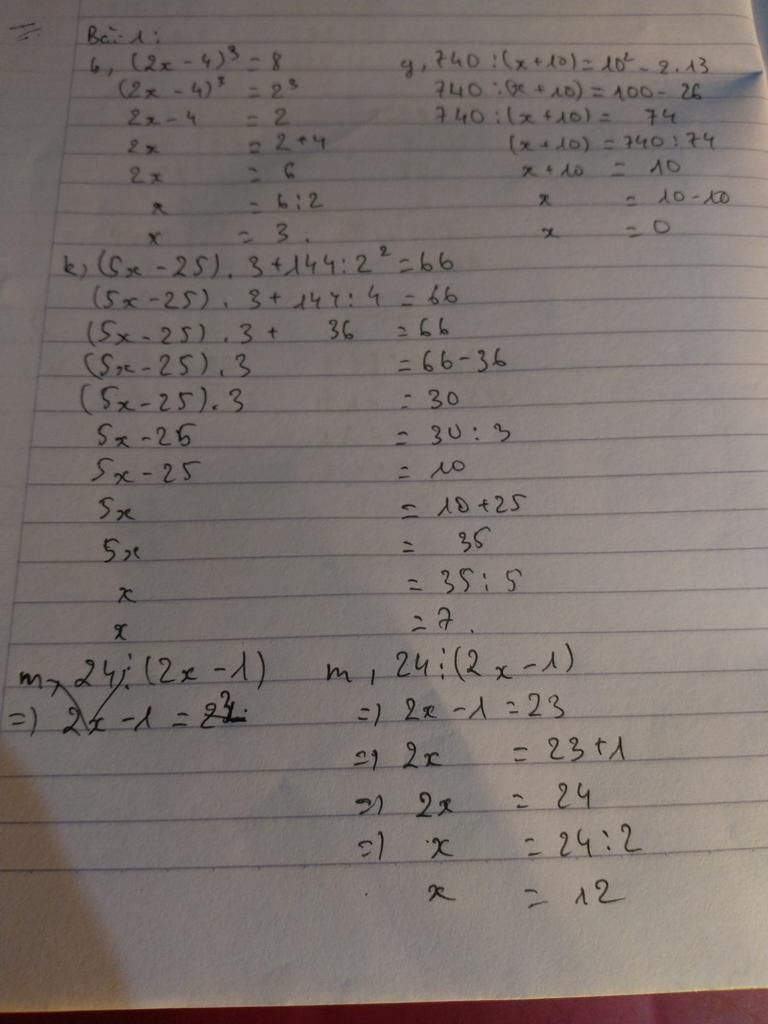 Bài 1:
b, (2x - 4)³ = 8
(2x - 4)³ = 2³
2x - 4 = 2
2x = 2 + 4
2x = 6
x = 6 : 2
x = 3.
g, 740 : (x + 10) = 10² - 2.13
740 : (x + 10) = 100 - 26
740 : (x + 10) = 74
(x + 10) = 740 : 74
x + 10 = 10
x = 10 - 10
x = 0
k, (5x - 25) . 3 + 144 : 2² = 66
(5x - 25) . 3 + 144 : 4 = 66
(5x - 25) . 3 + 36 = 66
(5x - 25) . 3 = 66 - 36
(5x - 25) . 3 = 30
5x - 25 = 30 : 3
5x - 25 = 10
5x = 10 + 25
5x = 35
x = 35 : 5
x = 7.
m, 24 ⋮ (2x - 1)
=> 2x - 1 =
m, 24 ⋮ (2x - 1)
=> 2x - 1 = 23
=> 2x = 23 + 1
=> 2x = 24
=> x = 24 : 2
x = 12